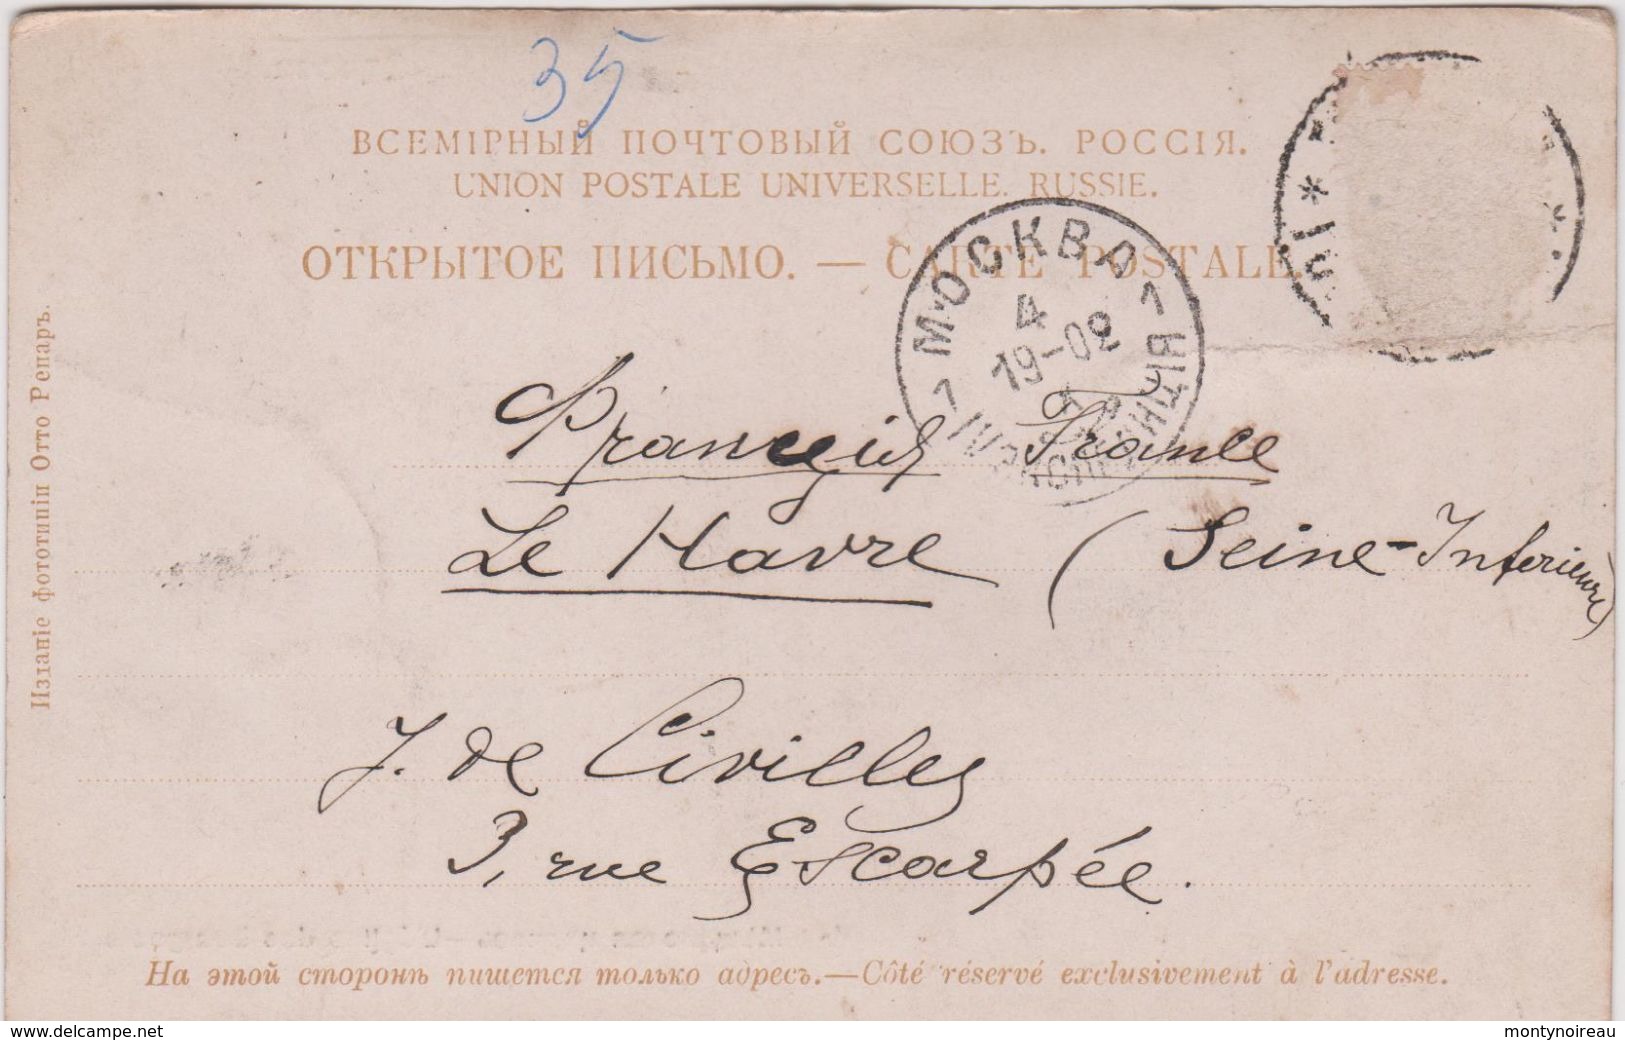 35
ВСЕМІРНЫЙ ПОЧТОВЫЙ СОЮЗЪ. РОССІЯ.
UNION POSTALE UNIVERSELLE. RUSSIE.
ОТКРЫТОЕ ПИСЬМО. — CARTE POSTALE.
МОСКВА
4
19-02
1
Изданіе фототипіи Отто Ренаръ.
France
Le Havre (Seine-Inferieure)
J. de Civilles
3, rue Escarpée.
На этой сторонѣ пишется только адресъ.—Côté réservé exclusivement à l'adresse.
www.delcampe.net
montynoireau